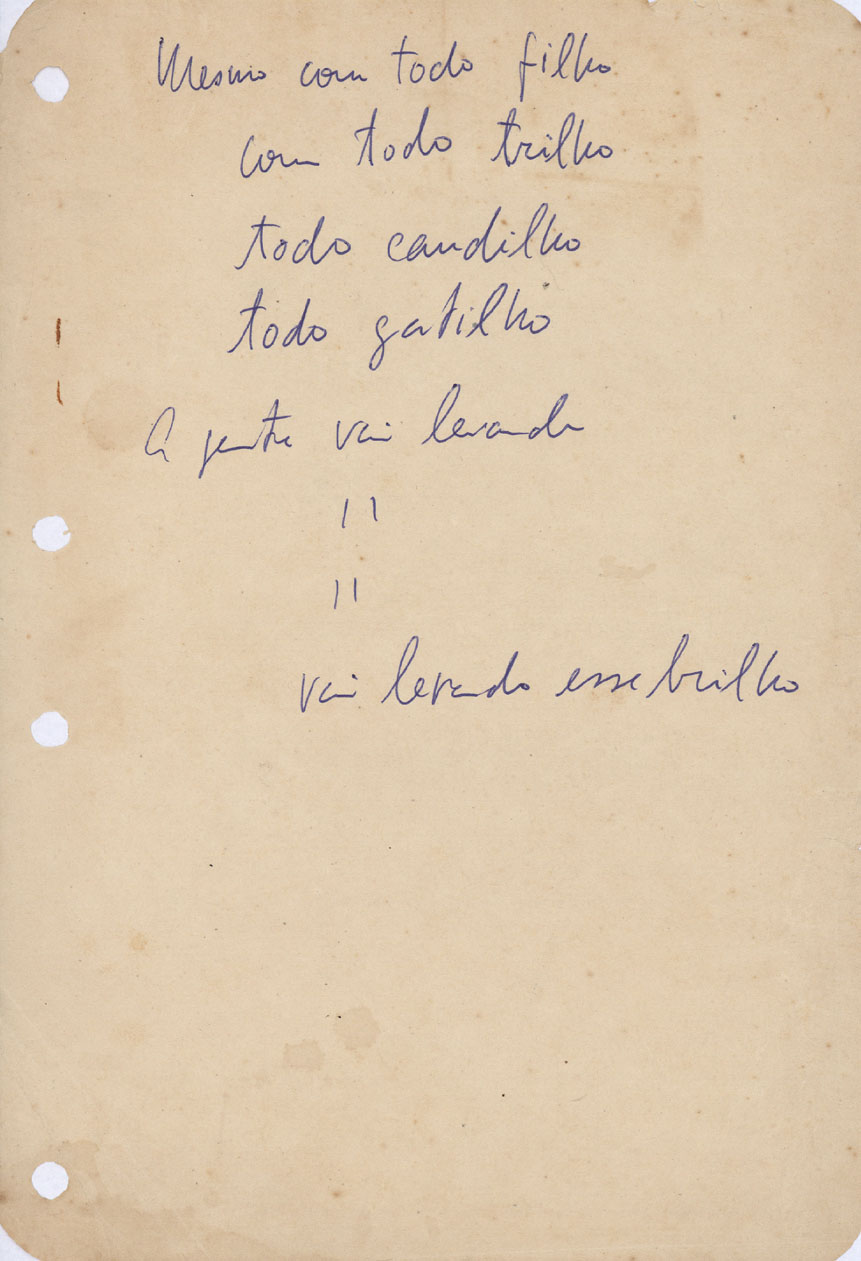 Mesmo com todo filho
com todo trilho
todo caudilho
todo gatilho
A gente vai levando
"
"
vai levando esse brilho